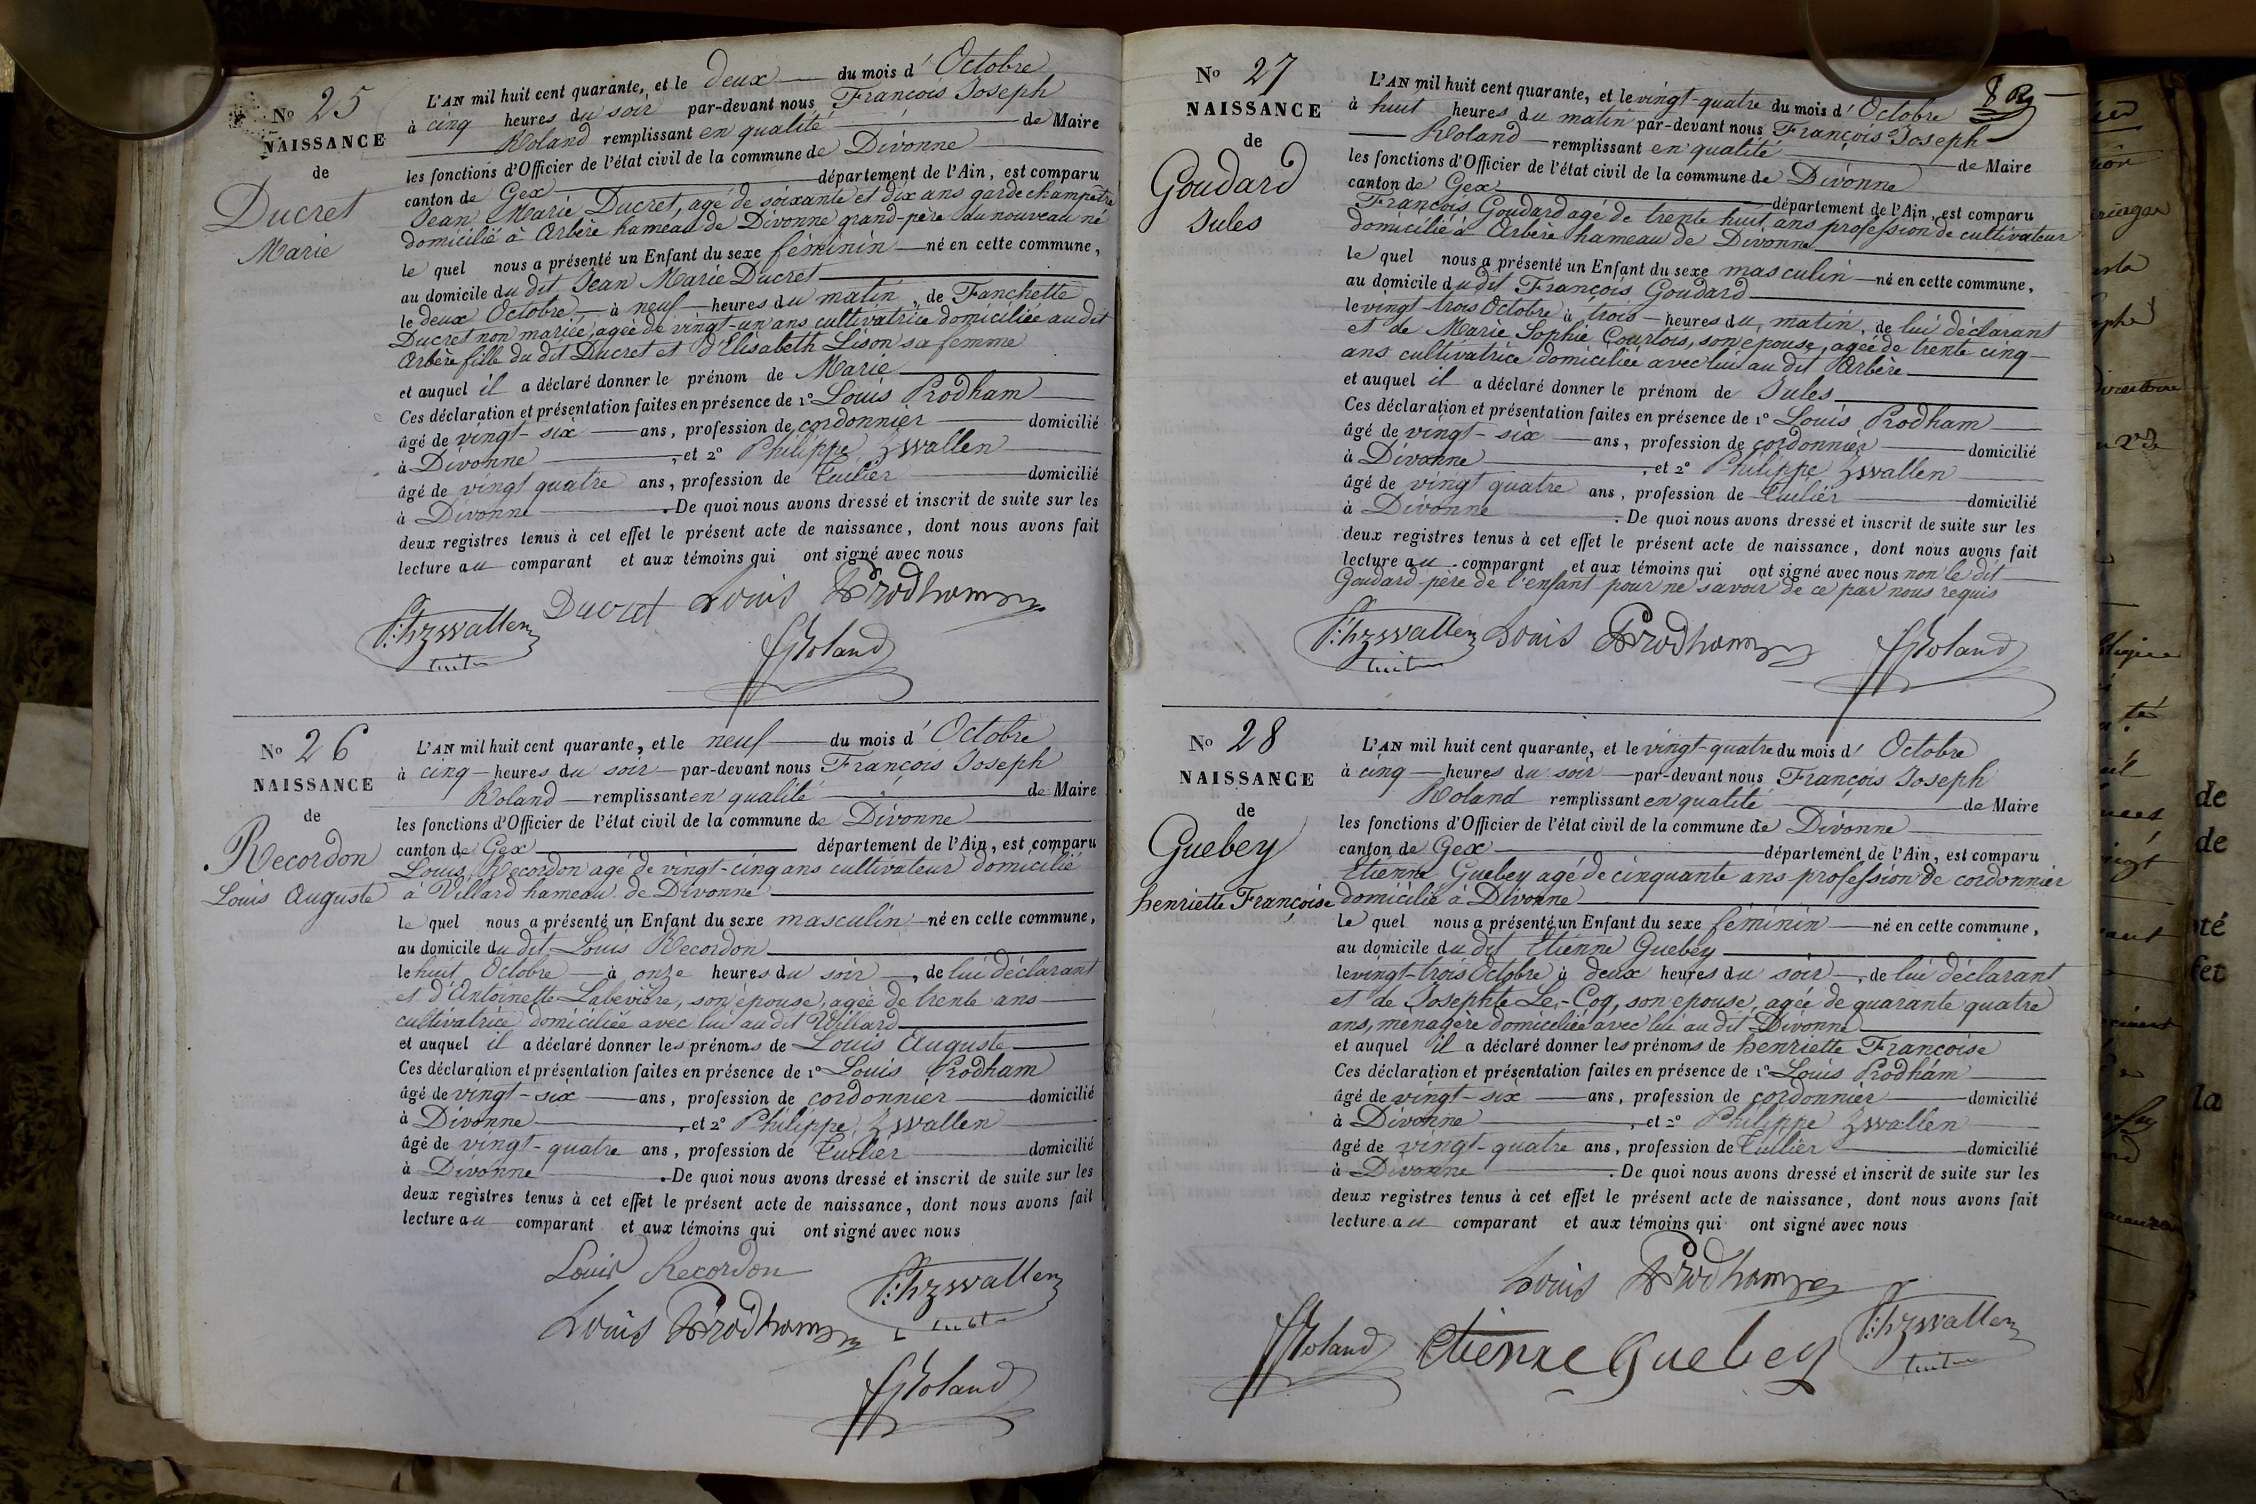 N° 25
NAISSANCE
de
Ducret
Marie
L'AN mil huit cent quarante, et le deux du mois d'Octobre
à cinq heures du soir par-devant nous François Joseph
Roland remplissant en qualité de Maire
les fonctions d'Officier de l'état civil de la commune de Divonne
canton de Gex département de l'Ain, est comparu
Jean Marie Ducret, agé de soixante et dix ans garde champêtre
domicilié à Arbère hameau de Divonne grand-père du nouveau né
le quel nous a présenté un Enfant du sexe féminin né en cette commune,
au domicile du dit Jean Marie Ducret
le deux Octobre à neuf heures du matin, de Fanchette
Ducret non mariée, agée de vingt-un ans cultivatrice domiciliée au dit
Arbère fille du dit Ducret et d'Elisabeth Lison sa femme
et auquel il a déclaré donner le prénom de Marie
Ces déclaration et présentation faites en présence de 1° Louis Prodham
âgé de vingt-six ans, profession de cordonnier domicilié
à Divonne, et 2° Philippe Zwallen
âgé de vingt quatre ans, profession de Tuilier domicilié
à Divonne. De quoi nous avons dressé et inscrit de suite sur les
deux registres tenus à cet effet le présent acte de naissance, dont nous avons fait
lecture au comparant et aux témoins qui ont signé avec nous
Ducret Louis Prodhom
P:hzwallen
tuil
Roland
N° 26
NAISSANCE
de
Recordon
Louis Auguste
L'AN mil huit cent quarante, et le neuf du mois d'Octobre
à cinq heures du soir par-devant nous François Joseph
Roland remplissant en qualité de Maire
les fonctions d'Officier de l'état civil de la commune de Divonne
canton de Gex département de l'Ain, est comparu
Louis Recordon agé de vingt-cinq ans cultivateur domicilié
à Villard hameau de Divonne
le quel nous a présenté un Enfant du sexe masculin né en cette commune,
au domicile du dit Louis Recordon
le huit Octobre à onze heures du soir, de lui déclarant
et d'Antoinette Labevière, son épouse, agée de trente ans
cultivatrice domiciliée avec lui au dit Villard
et auquel il a déclaré donner les prénoms de Louis Auguste
Ces déclaration et présentation faites en présence de 1° Louis Prodham
âgé de vingt-six ans, profession de cordonnier domicilié
à Divonne, et 2° Philippe Zwallen
âgé de vingt-quatre ans, profession de Tuilier domicilié
à Divonne. De quoi nous avons dressé et inscrit de suite sur les
deux registres tenus à cet effet le présent acte de naissance, dont nous avons fait
lecture au comparant et aux témoins qui ont signé avec nous
Louis Recordon
P:hzwallen
Louis Prodhom
Roland
N° 27
NAISSANCE
de
Goudard
Jules
8
L'AN mil huit cent quarante, et le vingt-quatre du mois d'Octobre
à huit heures du matin par-devant nous François Joseph
Roland remplissant en qualité de Maire
les fonctions d'Officier de l'état civil de la commune de Divonne
canton de Gex département de l'Ain, est comparu
François Goudard agé de trente huit ans profession de cultivateur
domicilié à Arbère hameau de Divonne
le quel nous a présenté un Enfant du sexe masculin né en cette commune,
au domicile du dit François Goudard
le vingt-trois Octobre à trois heures du matin, de lui déclarant
et de Marie Sophie Courtois, son epouse, agée de trente cinq
ans cultivatrice domiciliée avec lui au dit Arbère
et auquel il a déclaré donner le prénom de Jules
Ces déclaration et présentation faites en présence de 1° Louis Prodham
âgé de vingt-six ans, profession de cordonnier domicilié
à Divonne, et 2° Philippe Zwallen
âgé de vingt quatre ans, profession de Tuilier domicilié
à Divonne. De quoi nous avons dressé et inscrit de suite sur les
deux registres tenus à cet effet le présent acte de naissance, dont nous avons fait
lecture au comparant et aux témoins qui ont signé avec nous non le dit
Goudard père de l'enfant pour ne savoir de ce par nous requis
P:hzwallen Louis Prodhom Roland
tuil
N° 28
NAISSANCE
de
Guebey
henriette Françoise
L'AN mil huit cent quarante, et le vingt-quatre du mois d'Octobre
à cinq heures du soir par-devant nous François Joseph
Roland remplissant en qualité de Maire
les fonctions d'Officier de l'état civil de la commune de Divonne
canton de Gex département de l'Ain, est comparu
Etienne Guebey agé de cinquante ans profession de cordonnier
domicilié à Divonne
le quel nous a présenté un Enfant du sexe féminin né en cette commune,
au domicile du dit Etienne Guebey
le vingt-trois Octobre à deux heures du soir, de lui déclarant
et de Josephte Le-Coq, son epouse, agée de quarante quatre
ans, ménagère domiciliée avec lui au dit Divonne
et auquel il a déclaré donner les prénoms de henriette Françoise
Ces déclaration et présentation faites en présence de 1° Louis Prodham
âgé de vingt-six ans, profession de cordonnier domicilié
à Divonne, et 2° Philippe Zwallen
âgé de vingt-quatre ans, profession de Tuilier domicilié
à Divonne. De quoi nous avons dressé et inscrit de suite sur les
deux registres tenus à cet effet le présent acte de naissance, dont nous avons fait
lecture au comparant et aux témoins qui ont signé avec nous
Louis Prodhom
Roland Etienne Guebey P:hzwallen
tuil